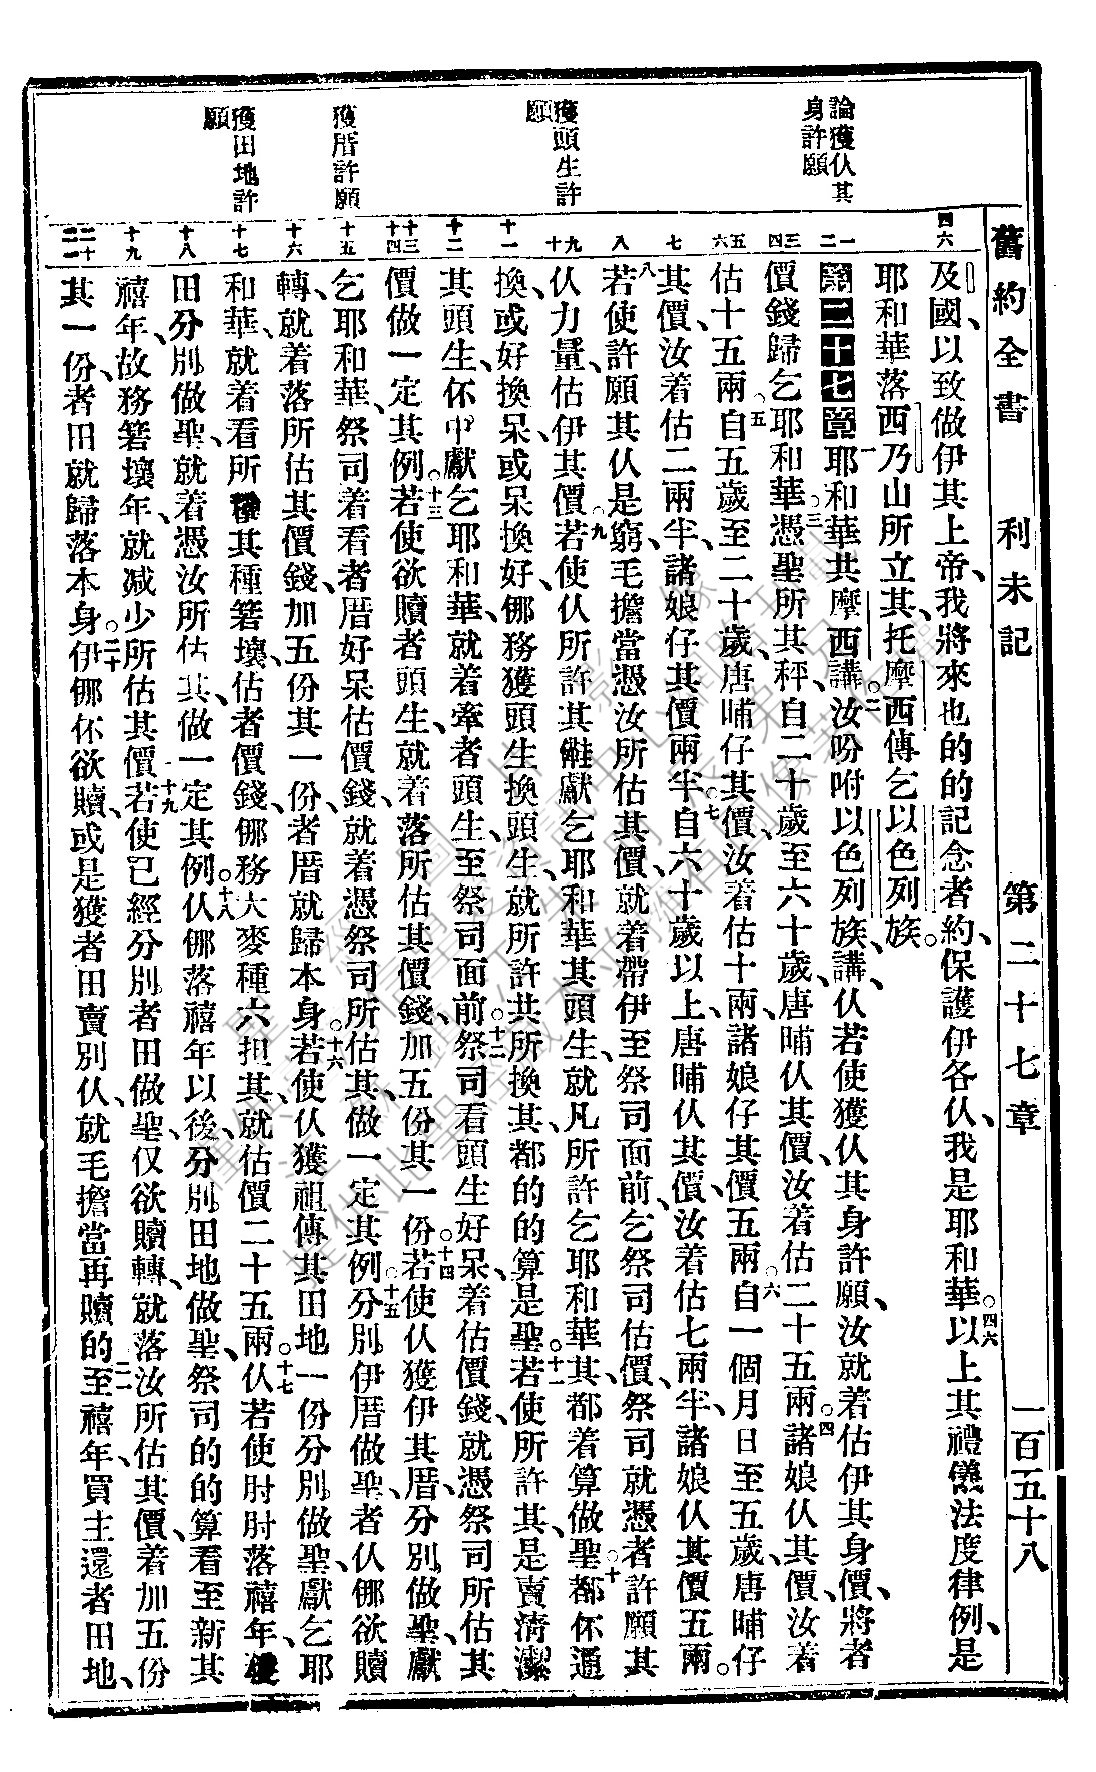 舊約全書 利未記 第二十七章 一百五十八
論獲仸其身許願
獲頭生許願
獲厝許願
獲田地許願
及國、以致做伊其上帝、我將來也的的記念者約、保護伊各仸、我是耶和華。四六以上其禮儀法度律例、是
耶和華落西乃山所立其、托摩西傳乞以色列族。
第二十七章一耶和華共摩西講、二汝吩咐以色列族、講、仸若使獲仸其身許願、汝就着估伊其身價、將者
價錢歸乞耶和華。三憑聖所其秤、自二十歲至六十歲、唐晡仸其價、汝着估二十五兩。四諸娘仸其價、汝着
估十五兩。五自五歲至二十歲、唐晡仔其價、汝着估十兩、諸娘仔其價五兩。六自一個月日至五歲、唐晡仔
其價、汝着估二兩半、諸娘仔其價兩半。七自六十歲以上、唐晡仸其價、汝着估七兩半、諸娘仸其價五兩。
八若使許願其仸是窮、毛擔當憑汝所估其價、就着帶伊至祭司面前、乞祭司估價、祭司就憑者許願其
仸力量、估伊其價。九若使仸所許其、能獻乞耶和華其頭生、就凡所許乞耶和華其、都着算做聖。十都伓通
換、或好換呆、或呆換好、倻務獲頭生換頭生、就所許共所換其、都的的算是聖。十一若使所許其、是賣清潔
其頭生、伓中獻乞耶和華、就着牽者頭生、至祭司面前。十二祭司看頭生好呆、着估價錢、就憑祭司所估其
價做一定其例。十三若使欲贖者頭生、就着落所估其價錢、加五份其一份。十四若使仸獲伊其厝、分別做聖、獻
乞耶和華、祭司着看者厝好呆估價錢、就着憑祭司所估其、做一定其例。十五分別伊厝做聖、者仸倻欲贖
轉、就着落所估其價錢、加五份其一份、者厝就歸本身。十六若使仸獲祖傳其田地一份、分別做聖、獻乞耶
和華、就着看所種其種箬壞、估者價錢、倻務大麥種六担其、就估價二十五兩。十七仸若使肘肘落禧年、獲
田分別做聖、就着憑汝所估其、做一定其例。十八仸倻落禧年以後、分別田地做聖、祭司的的算看至新其
禧年、故務箬壞年、就減少所估其價。十九若使已經分別者田做聖、仅欲贖轉、就落汝所估其價、着加五份
其一份、者田就歸落本身。二十伊倻伓欲贖、或是獲者田賣別仸、就毛擔當再贖的。二一至禧年買主還者田地、